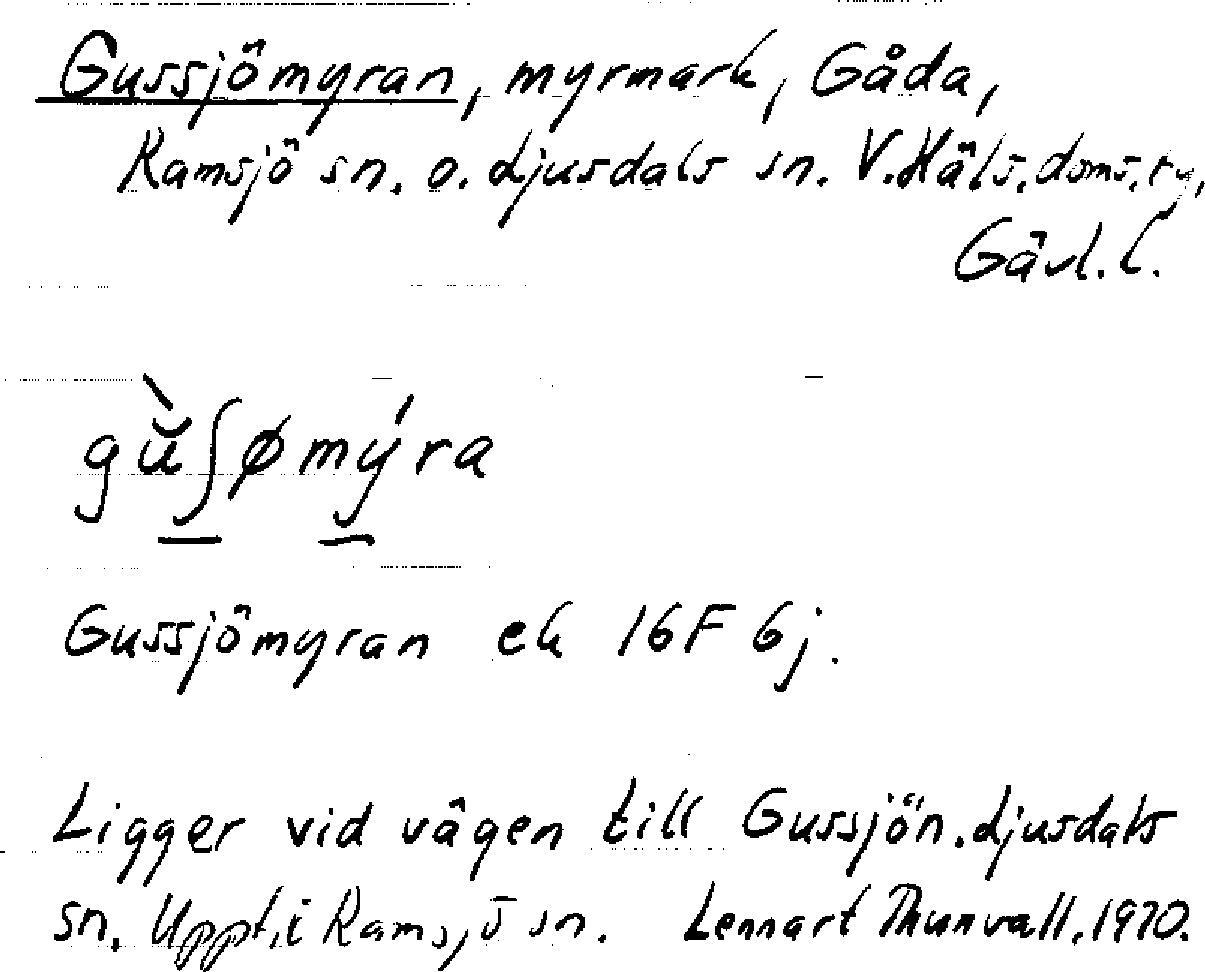 Gussjömyran, myrmark, Gåda,
Ramsjö sn. o. Ljusdals sn. V. Häls. doms. ry,
Gävl. l.
gùʃømýra
Gussjömyran ek 16F 6j.
Ligger vid vägen till Gussjön. Ljusdals
sn. Uppt. i Ramsjö sn. Lennart Thunvall. 1970.